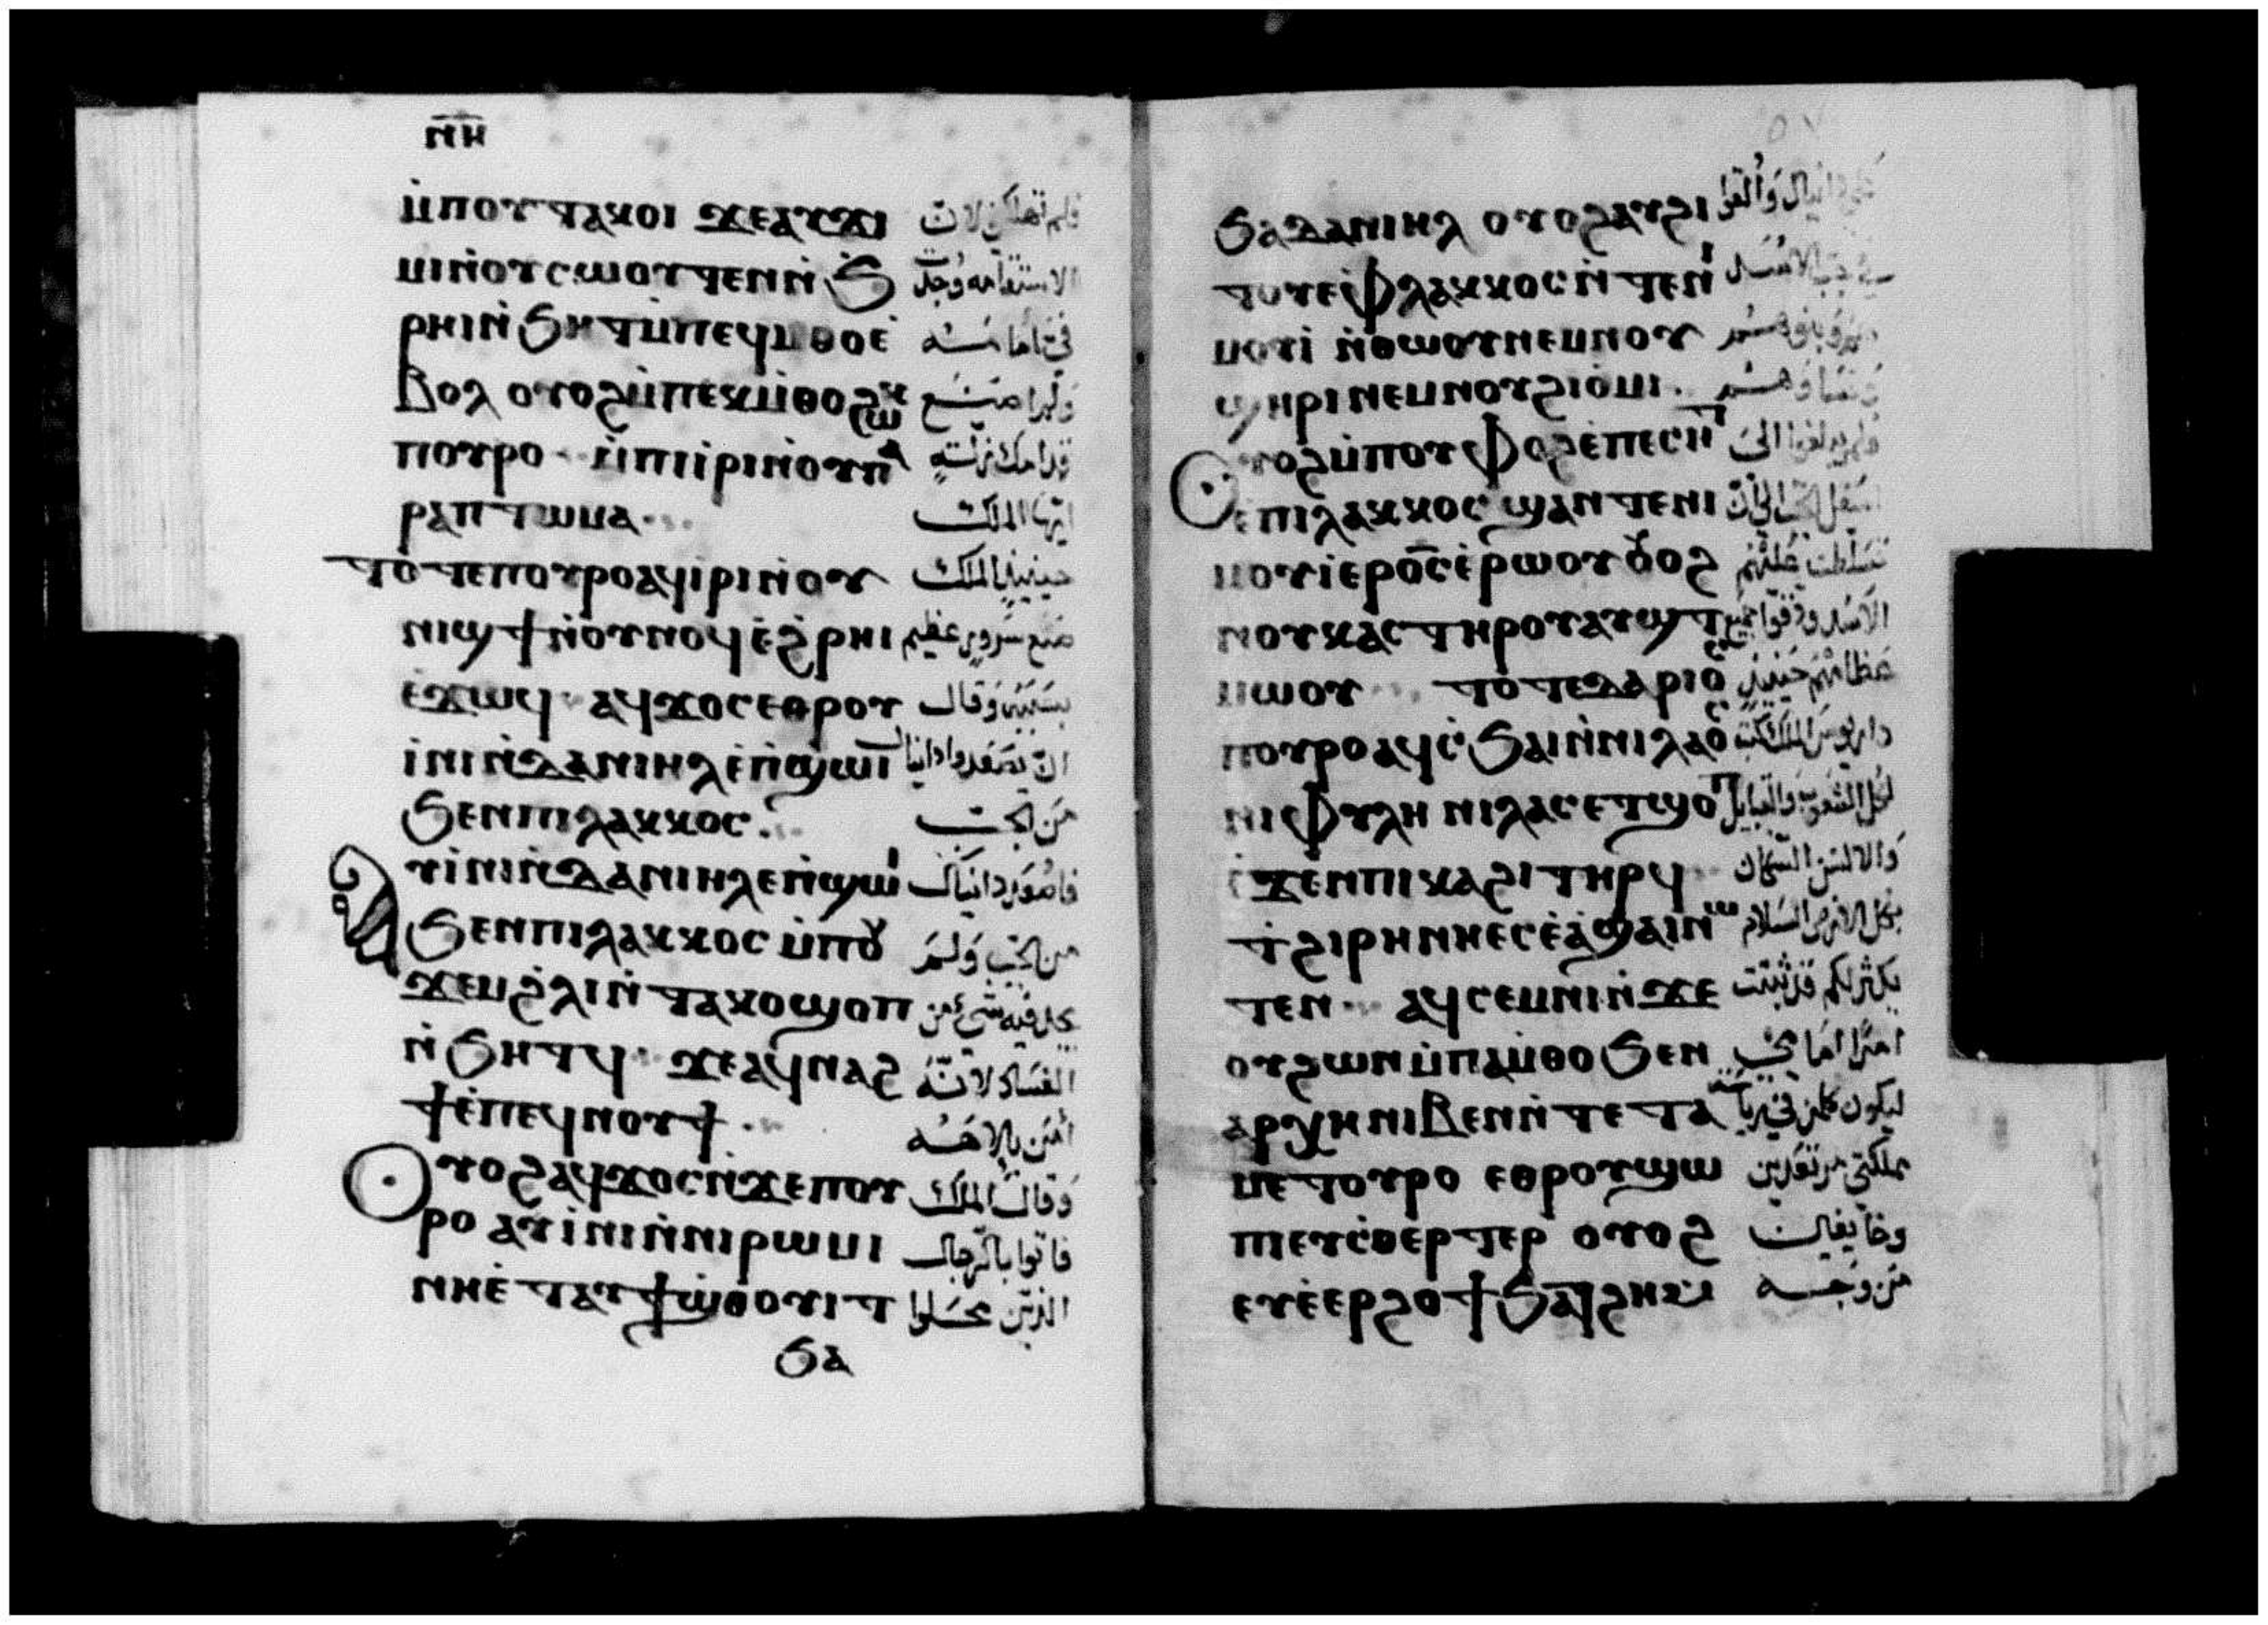 ⲛ̅ⲏ̅
ⲙ̀ⲡⲟⲩⲧⲁⲕⲟⲓ ϫⲉⲁⲩϫⲓ فلم تهلكن لان
ⲙⲓⲛ̀ⲟⲩⲥⲱⲟⲩⲧⲉⲛⲛ̀ϧ الاستقامه وجدت
ⲣⲏⲓⲛ̀ϧⲏⲧⲙ̀ⲡⲉϥⲙ̀ⲑⲟⲉ̀ في امامه
ⲃⲟⲗ ⲟⲩⲟϩⲙ̀ⲡⲉⲕⲙ̀ⲑⲟϩⲱ
ⲡⲟⲩⲣⲟ ⲙ̀ⲡⲓⲓ̀ⲣⲓⲛ̀ⲟⲩⲡⲁ
ⲣⲁⲡⲧⲱⲙⲁ ايها الملك
ⲧⲟ̀ⲧⲉⲡⲟⲩⲣⲟⲁϥⲓ̀ⲣⲓⲛ̀ⲟⲩ حينيذ الملك
ⲛⲓϣϯⲛ̀ⲟⲩⲛⲟϥⲉ̀ϩ̀ⲣⲏⲓ صنع سرور عظيم
ⲉ̀ϫⲱϥ ⲁϥϫⲟⲥⲉⲑⲣⲟⲩ بسببه وقال
ⲓ̀ⲛⲓⲛ̀ⲇⲁⲛⲓⲏⲗⲉ̀ⲡ̀ϣⲱⲓ ان يصعدوا دانيال
ϧⲉⲛⲡⲓⲗⲁⲕⲕⲟⲥ من الجب
ⲁⲩⲓ̀ⲛⲓⲛ̀ⲇⲁⲛⲓⲏⲗⲉⲡ̀ϣⲱⲓ فاصعد دانيال
ϧⲉⲛⲡⲓⲗⲁⲕⲕⲟⲥ ⲙ̀ⲡⲟⲩ من الجب ولم
ϫⲉⲙϩ̀ⲗⲓⲛ̀ⲧⲁⲕⲟϣⲟⲡ يجد فيه شي من
ⲛ̀ϧⲏⲧϥ ϫⲉⲁϥⲛⲁϩ الفساد لانه
ϯⲉ̀ⲡⲉϥⲛⲟⲩϯ امن بالاهه
ⲟⲩⲟϩⲁϥϫⲟⲥⲛ̀ϫⲉⲡⲟⲩ وقال الملك
ⲣⲟ ⲁⲩⲓ̀ⲛⲓⲛ̀ⲛⲓⲣⲱⲙⲓ فاتوا بالرجال
ⲛⲏⲉ̀ⲧⲁⲩϯϣ̀ⲑⲟⲩⲓⲧ الذين محلوا
ϧⲁ
ϧⲁⲇⲁⲛⲓⲏⲗ ⲟⲩⲟϩⲁⲩϩⲓ دانيال والقوا
ⲧⲟⲩⲉ̀ⲫⲗⲁⲕⲕⲟⲥⲛ̀ⲧⲉⲛⲓ جب الاسد
ⲙⲟⲩⲓ̀ ⲛ̀ⲑⲱⲟⲩⲛⲉⲙⲛⲟⲩ
ϣⲏⲣⲓⲛⲉⲙⲛⲟⲩϩⲓⲟ̀ⲙⲓ ونساوهم
ⲟⲩⲟϩⲙ̀ⲡⲟⲩⲫⲟϩⲉ̀ⲡⲉⲥⲏⲧ فلم يبلغوا الى
ⲉ̀ⲡⲓⲗⲁⲕⲕⲟⲥ ϣⲁⲛⲧⲉⲛⲓ اسفل الجب الى ان
ⲙⲟⲩⲓ̀ⲉⲣⲟ̅ⲥ̅ⲉ̀ⲣⲱⲟⲩⲟⲩⲟϩ تسلطت عليهم
ⲛⲟⲩⲕⲁⲥⲧⲏⲣⲟⲩⲁⲩϣⲧ الاسد ودقوا جميع
ⲙⲱⲟⲩ ⲧⲟ̀ⲧⲉⲇⲁⲣⲓⲟⲥ عظامهم حينيذ
ⲡⲟⲩⲣⲟⲁϥⲥ̀ϧⲁⲓⲛ̀ⲛⲓⲗⲁⲟⲥ داريوس الملك كتب
ⲛⲓⲫⲩⲗⲏ ⲛⲓⲗⲁⲥⲉⲧϣⲟⲡ لكل الشعوب والقبايل
ϫⲉⲛⲡⲓⲕⲁϩⲓⲧⲏⲣϥ والالسن السكان
ϯϩⲓⲣⲏⲛⲏⲉⲥⲉ̀ⲁ̀ϣⲁⲓⲛⲱ بكل الارض السلام
ⲧⲉⲛ ⲁϥⲥⲉⲙⲛⲓⲛ̀ϫⲉ يكثر لكم قد ثبتت
ⲟⲩϩⲱⲛⲙ̀ⲡⲁⲙ̀ⲑⲟϧⲉⲛ امرا امامي
ⲁⲣⲭⲏⲛⲓⲃⲉⲛⲛ̀ⲧⲉⲧⲁ ليكون كلمن في رياسه
ⲙⲉⲧⲟⲩⲣⲟ ⲉⲑⲣⲟⲩϣⲱ مملكتي مرتعدين
ⲡⲓⲉⲩⲥ̀ⲑⲉⲣⲧⲉⲣ ⲟⲩⲟϩ وخايفين
ⲉⲩⲉ̀ⲉⲣϩⲟϯϧⲁⲧϩⲏ من وجه